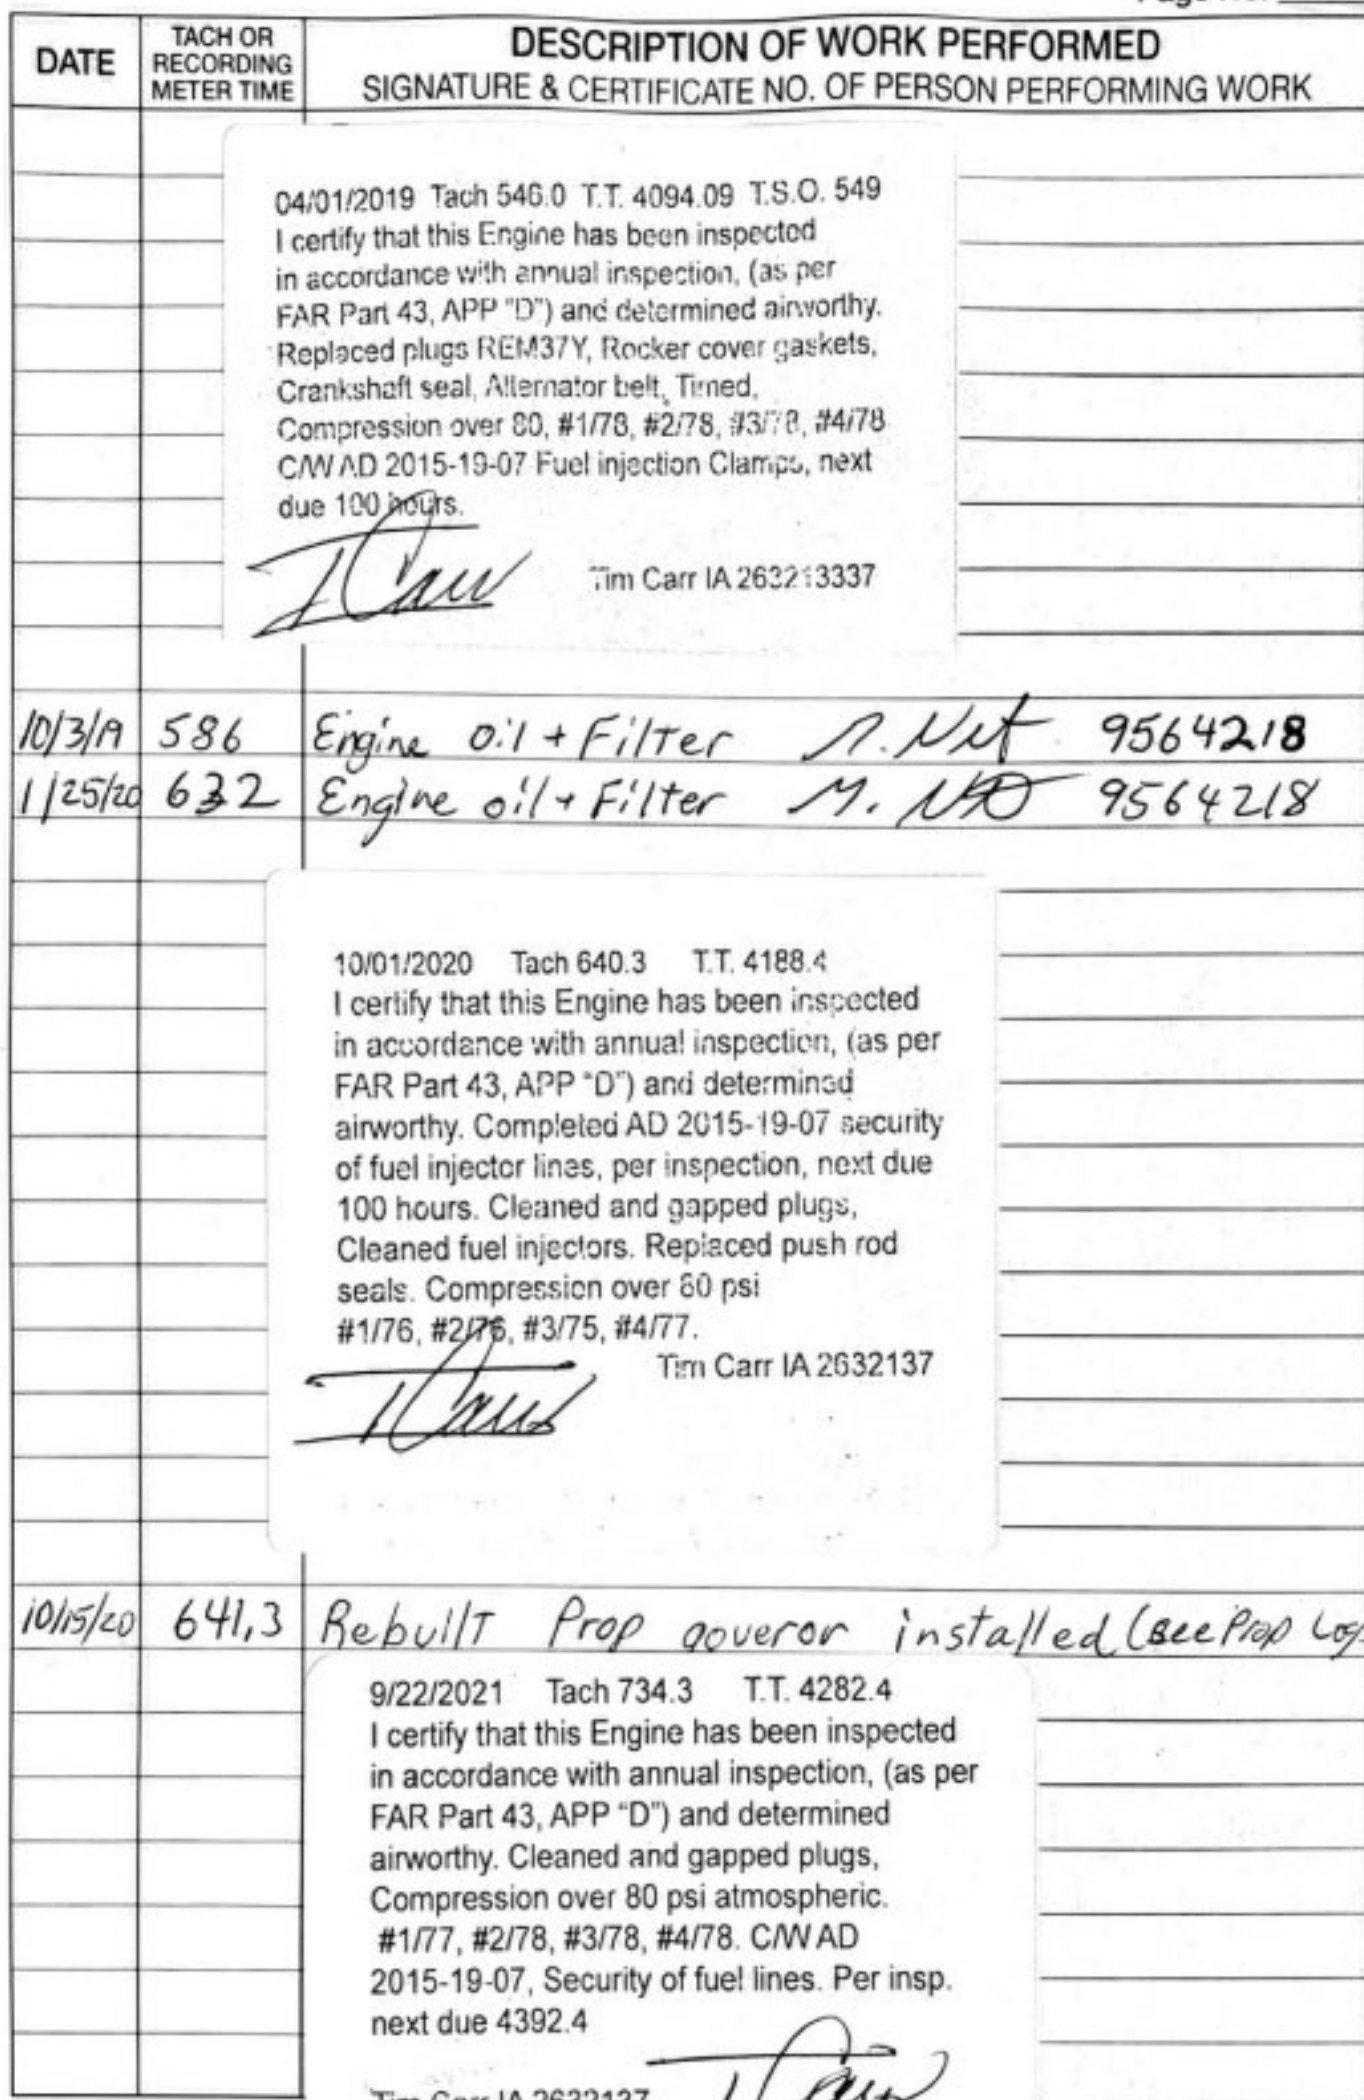 DATE
TACH OR
RECORDING
METER TIME
DESCRIPTION OF WORK PERFORMED
SIGNATURE & CERTIFICATE NO. OF PERSON PERFORMING WORK
04/01/2019 Tach 546.0 T.T. 4094.09 T.S.O. 549
I certify that this Engine has been inspected
in accordance with annual inspection, (as per
FAR Part 43, APP "D") and determined airworthy.
Replaced plugs REM37Y, Rocker cover gaskets,
Crankshaft seal, Alternator belt, Timed,
Compression over 80, #1/78, #2/78, #3/78, #4/78
C/W AD 2015-19-07 Fuel injection Clamps, next
due 100 hours.
Tim Carr IA 263213337
10/3/19 586 Engine oil + Filter 9564218
1/25/20 632 Engine oil + Filter M. 9564218
10/01/2020 Tach 640.3 T.T. 4188.4
I certify that this Engine has been inspected
in accordance with annual inspection, (as per
FAR Part 43, APP "D") and determined
airworthy. Completed AD 2015-19-07 security
of fuel injector lines, per inspection, next due
100 hours. Cleaned and gapped plugs,
Cleaned fuel injectors. Replaced push rod
seals. Compression over 80 psi
#1/76, #2/76, #3/75, #4/77.
Tim Carr IA 2632137
10/15/20 641,3 Rebuilt Prop goveror installed (see Prop Logs
9/22/2021 Tach 734.3 T.T. 4282.4
I certify that this Engine has been inspected
in accordance with annual inspection, (as per
FAR Part 43, APP "D") and determined
airworthy. Cleaned and gapped plugs,
Compression over 80 psi atmospheric.
#1/77, #2/78, #3/78, #4/78. C/W AD
2015-19-07, Security of fuel lines. Per insp.
next due 4392.4
Tim Carr IA 2632137